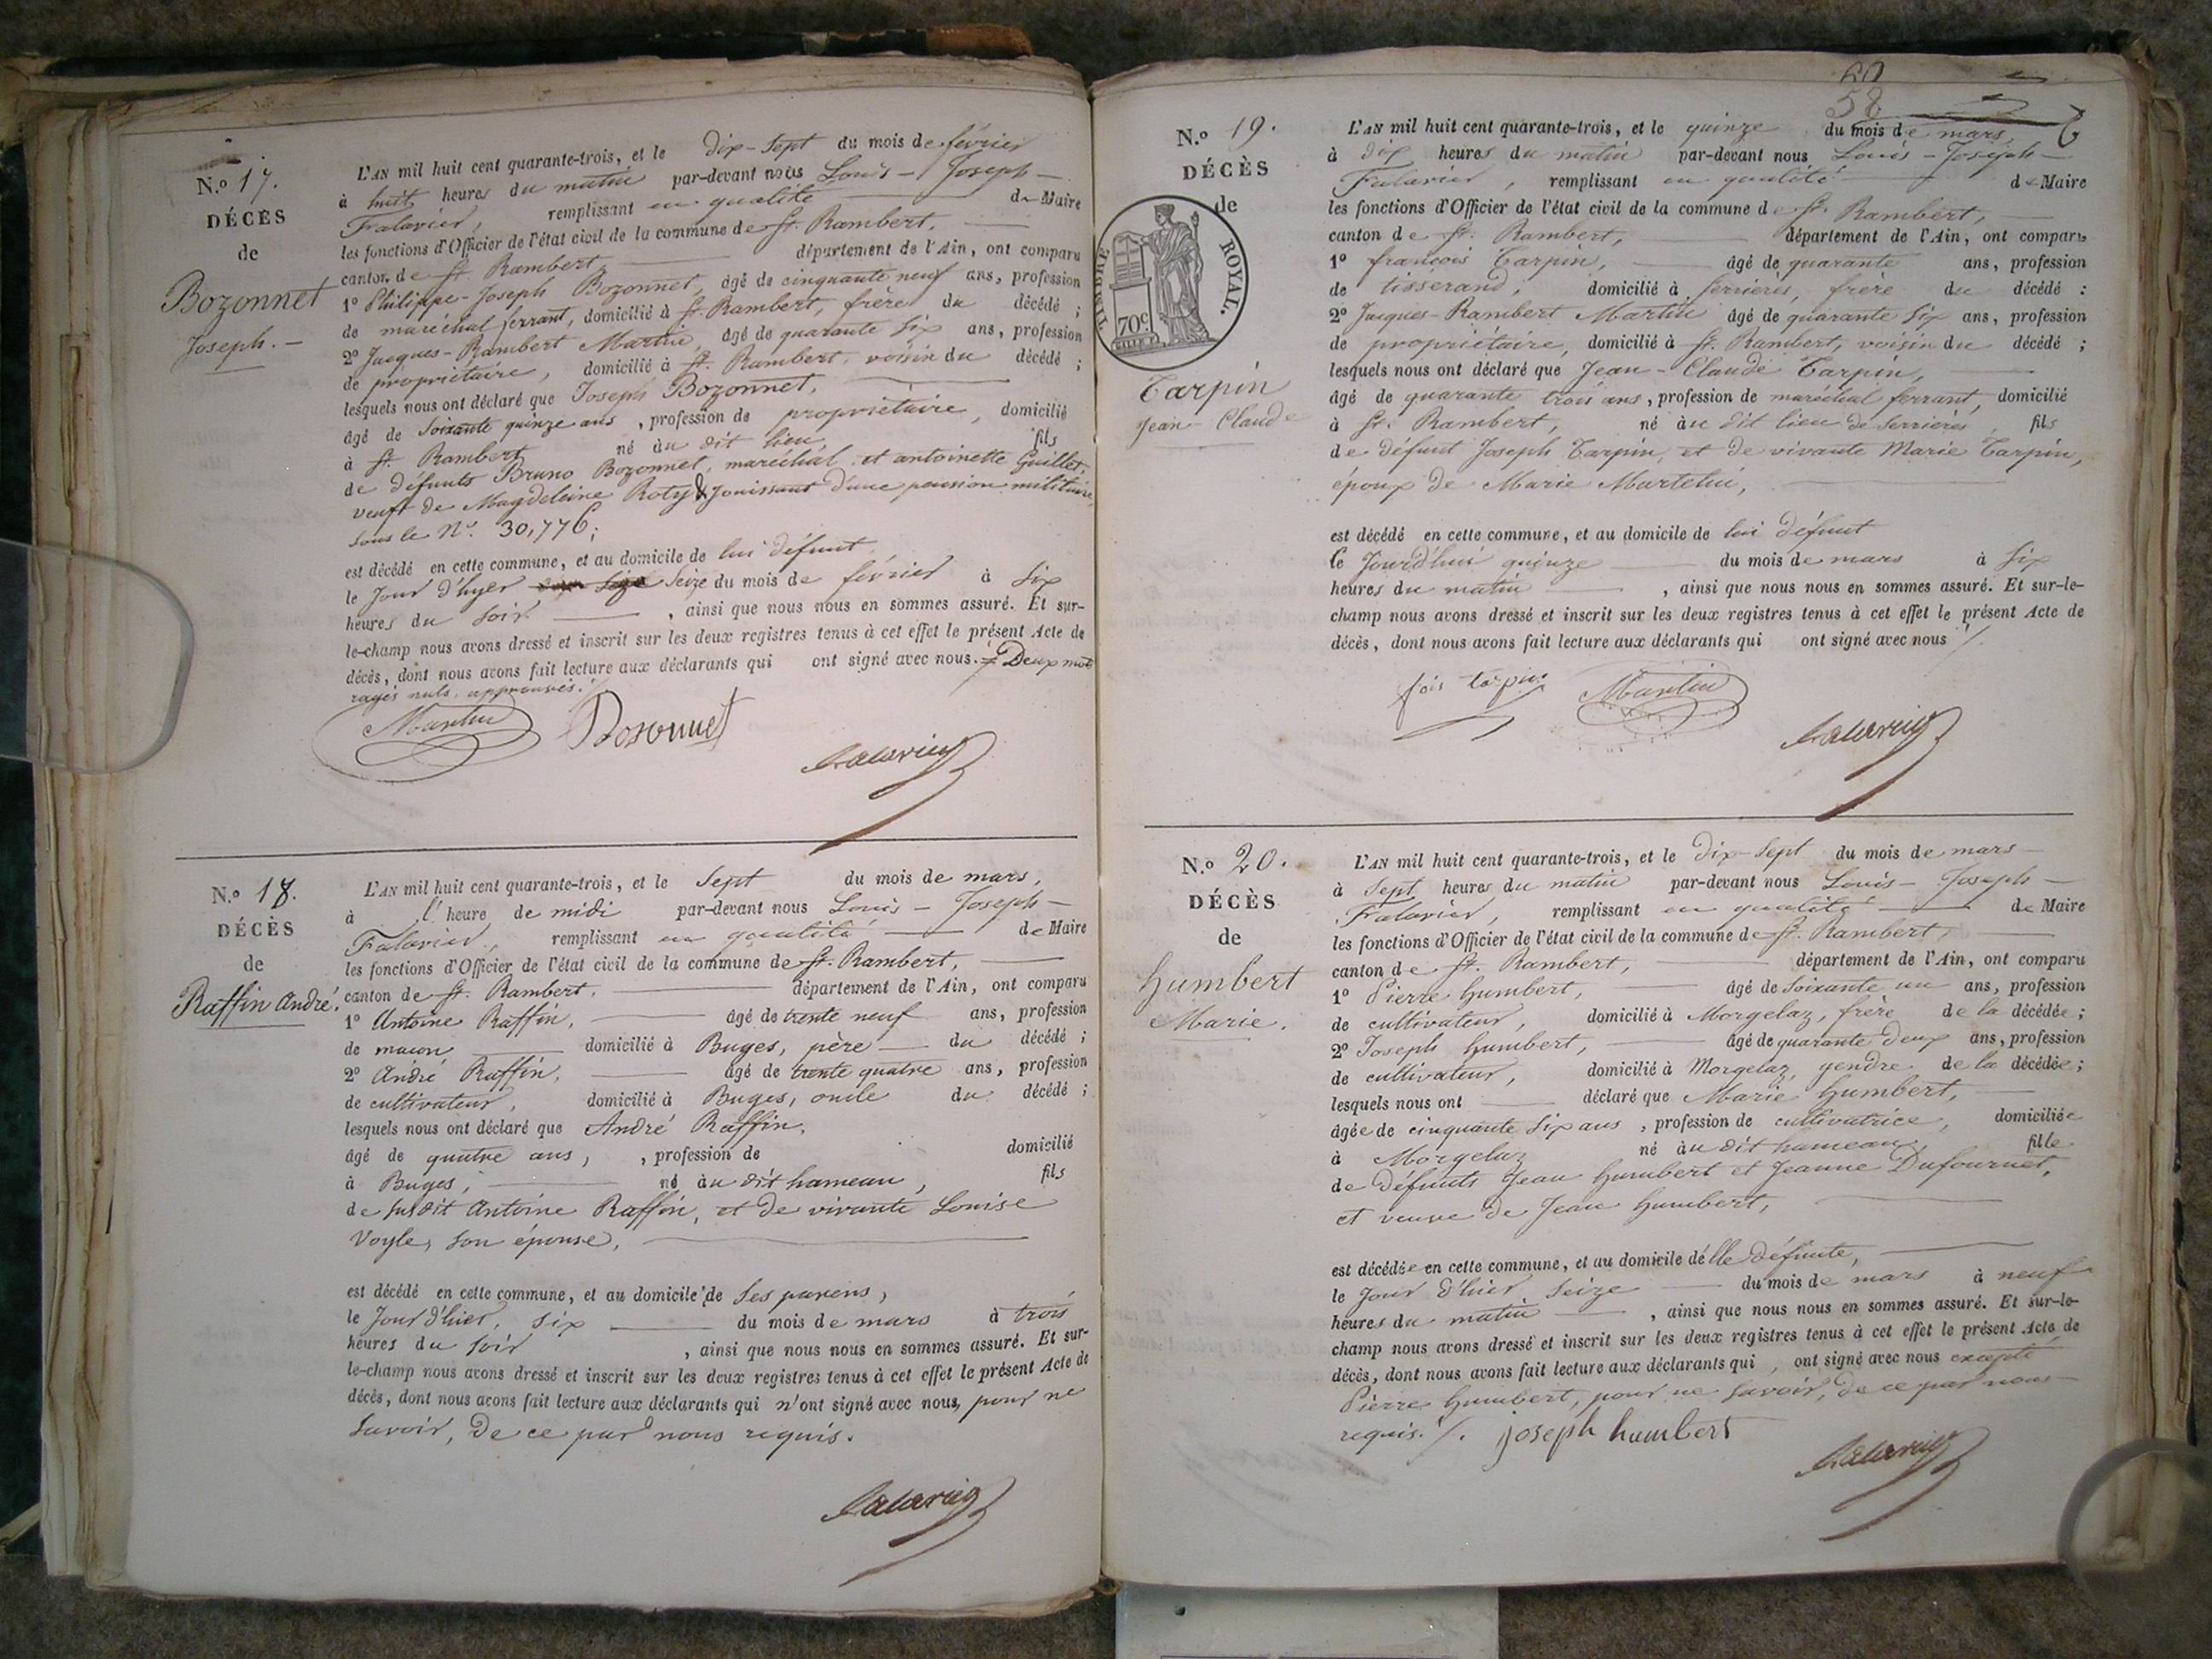 N.º 17.
DÉCÈS
de
Bozonnet
Joseph. —
L'AN mil huit cent quarante-trois, et le dix-sept du mois de février
à huit heures du matin par-devant nous Louis - Joseph -
Falavier, remplissant en qualité de Maire
les fonctions d'Officier de l'état civil de la commune de St. Rambert,
canton de St. Rambert, département de l'Ain, ont comparu
1º Philippe-Joseph Bozonnet, âgé de cinquante neuf ans, profession
de maréchal ferrant, domicilié à St. Rambert, frère du décédé ;
2º Jacques-Rambert Martin, âgé de quarante six ans, profession
de propriétaire, domicilié à St. Rambert, voisin du décédé ;
lesquels nous ont déclaré que Joseph Bozonnet,
âgé de soixante quinze ans, profession de propriétaire, domicilié
à St. Rambert né au dit lieu, fils
de défunts Bruno Bozonnet, maréchal, et antoinette Guillet,
veuf de Magdeleine Roty & jouissant d'une pension militaire,
sous le Nº. 30,776;
est décédé en cette commune, et au domicile de lui défunt
le jour d'hyer seize du mois de février à six
heures du soir, ainsi que nous nous en sommes assuré. Et sur-
le-champ nous avons dressé et inscrit sur les deux registres tenus à cet effet le présent Acte de
décès, dont nous avons fait lecture aux déclarants qui ont signé avec nous. Deux mots
rayés nuls, approuvés.
Martin Bosonnet
Falavier
N.º 18.
DÉCÈS
de
Raffin André.
L'AN mil huit cent quarante-trois, et le sept du mois de mars,
à l' heure de midi par-devant nous Louis - Joseph -
Falavier, remplissant en qualité de Maire
les fonctions d'Officier de l'état civil de la commune de St. Rambert,
canton de St. Rambert, département de l'Ain, ont comparu
1º Antoine Raffin, âgé de trente neuf ans, profession
de maçon domicilié à Buges, père du décédé ;
2º André Raffin, âgé de trente quatre ans, profession
de cultivateur, domicilié à Buges, oncle du décédé ;
lesquels nous ont déclaré que André Raffin,
âgé de quatre ans, , profession de domicilié
à Buges, né au dit hameau, fils
de susdit Antoine Raffin, et de vivante Louise
Voyle, son épouse,
est décédé en cette commune, et au domicile de ses parens,
le jour d'hier, six du mois de mars à trois
heures du soir, ainsi que nous nous en sommes assuré. Et sur-
le-champ nous avons dressé et inscrit sur les deux registres tenus à cet effet le présent Acte de
décès, dont nous avons fait lecture aux déclarants qui n'ont signé avec nous, pour ne
savoir, de ce par nous requis.
Falavier
58
N.º 19.
DÉCÈS
de
TIMBRE ROYAL.
70c
Tarpin
Jean-Claude
L'AN mil huit cent quarante-trois, et le quinze du mois de mars,
à dix heures du matin par-devant nous Louis - Joseph -
Falavier, remplissant en qualité de Maire
les fonctions d'Officier de l'état civil de la commune de St. Rambert,
canton de St. Rambert, département de l'Ain, ont comparu
1º françois Tarpin, âgé de quarante ans, profession
de tisserand, domicilié à serrières, frère du décédé :
2º Jacques-Rambert Martin âgé de quarante six ans, profession
de propriétaire, domicilié à St. Rambert, voisin du décédé ;
lesquels nous ont déclaré que Jean-Claude Tarpin,
âgé de quarante trois ans, profession de maréchal ferrant, domicilié
à St. Rambert, né au dit lieu de serrières, fils
de défunt Joseph Tarpin, et de vivante Marie Tarpin,
époux de Marie Martelin,
est décédé en cette commune, et au domicile de lui défunt
le Jourd'hui quinze du mois de mars à six
heures du matin, ainsi que nous nous en sommes assuré. Et sur-le-
champ nous avons dressé et inscrit sur les deux registres tenus à cet effet le présent Acte de
décès, dont nous avons fait lecture aux déclarants qui ont signé avec nous
fois tarpin Martin
Falavier
N.º 20.
DÉCÈS
de
humbert
Marie.
L'AN mil huit cent quarante-trois, et le dix-sept du mois de mars
à sept heures du matin par-devant nous Louis - Joseph -
Falavier, remplissant en qualité de Maire
les fonctions d'Officier de l'état civil de la commune de St. Rambert,
canton de St. Rambert, département de l'Ain, ont comparu
1º Pierre humbert, âgé de soixante un ans, profession
de cultivateur, domicilié à Morgelaz, frère de la décédée ;
2º Joseph humbert, âgé de quarante deux ans, profession
de cultivateur, domicilié à Morgelaz, gendre de la décédée ;
lesquels nous ont déclaré que Marie humbert,
âgée de cinquante six ans, profession de cultivatrice, domiciliée
à Morgelaz né au dit hameau, fille
de défunts Jean humbert et Jeanne Dufournet,
et veuve de Jean humbert,
est décédée en cette commune, et au domicile d'elle défunte,
le jour d'hier seize du mois de mars à neuf
heures du matin, ainsi que nous nous en sommes assuré. Et sur-le-
champ nous avons dressé et inscrit sur les deux registres tenus à cet effet le présent Acte de
décès, dont nous avons fait lecture aux déclarants qui, ont signé avec nous excepté
Pierre humbert, pour ne savoir, de ce par nous
requis. joseph humbert
Falavier